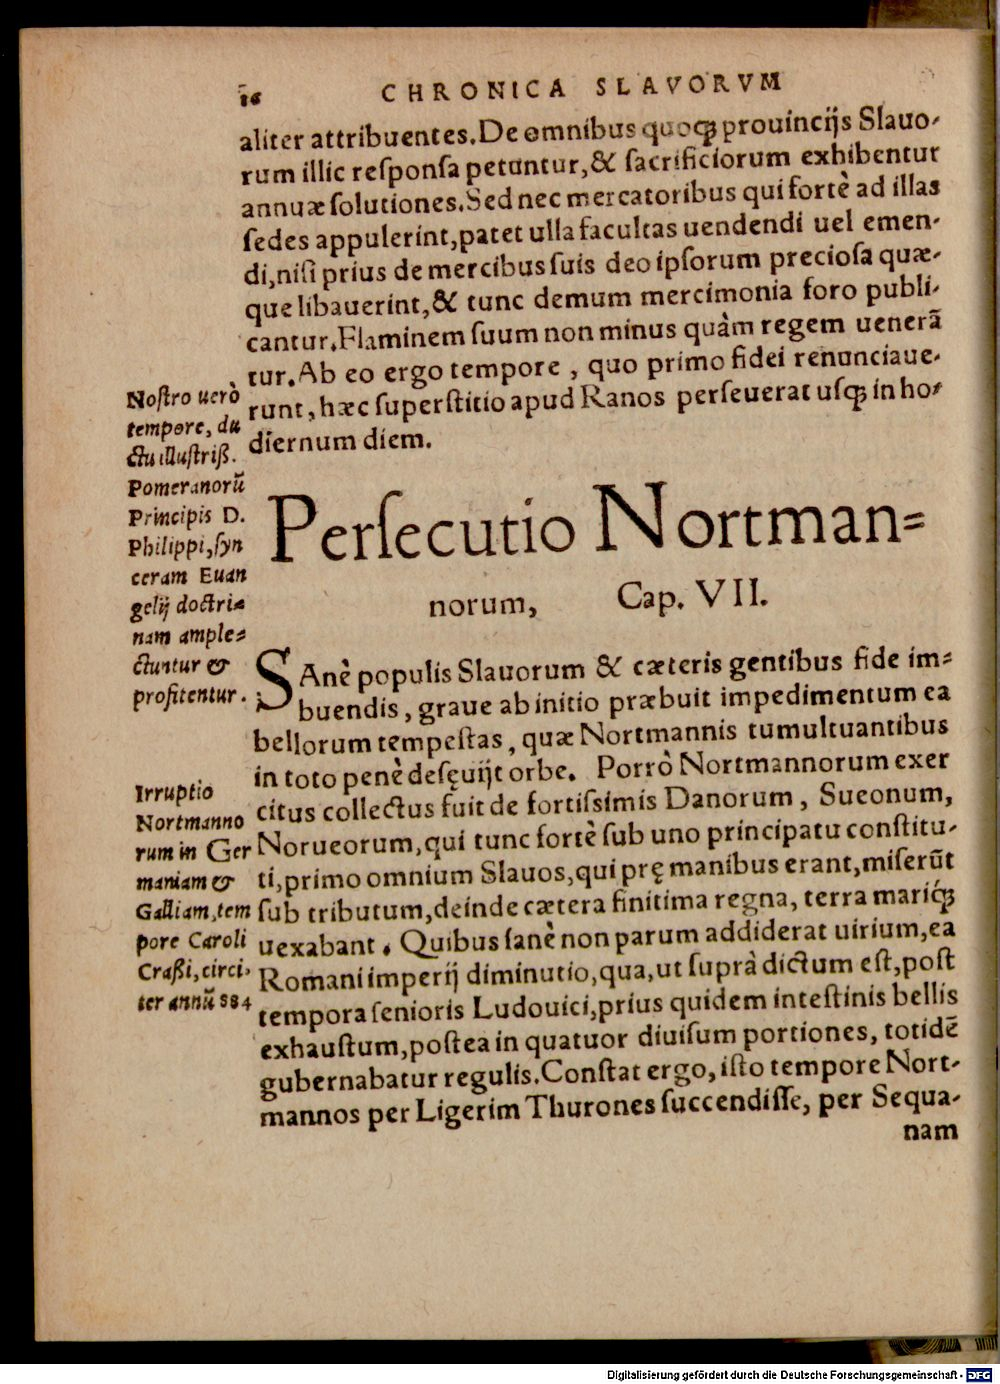 16 CHRONICA SLAVORVM
aliter attribuentes.De omnibus quoqꝫ prouincijs Slauo-
rum illic reſponſa petuntur,& ſacrificiorum exhibentur
annuæ ſolutiones.Sed nec mercatoribus qui fortè ad illas
ſedes appulerint,patet ulla facultas uendendi uel emen-
di,niſi prius de mercibus ſuis deo ipſorum precioſa quæ-
que libauerint,& tunc demum mercimonia foro publi-
cantur.Flaminem ſuum non minus quàm regem uenerã
tur.Ab eo ergo tempore , quo primo fidei renunciaue-
runt,hæc ſuperſtitio apud Ranos perſeuerat uſqꝫ in ho-
diernum diem.
Noſtro uerò
tempore, du
ctu illuſtriß.
Pomeranorũ
Principis D.
Philippi,ſyn
ceram Euan
gelij doctri=
nam ample=
ctuntur &
profitentur.
Perſecutio Nortman=
norum, Cap. VII.
SAnè populis Slauorum & cæteris gentibus fide im=
buendis, graue ab initio præbuit impedimentum ea
bellorum tempeſtas, quæ Nortmannis tumultuantibus
in toto penè deſęuijt orbe. Porrò Nortmannorum exer
citus collectus fuit de fortiſsimis Danorum, Sueonum,
Norueorum,qui tunc fortè ſub uno principatu conſtitu-
ti,primo omnium Slauos,qui prę manibus erant,miſerũt
ſub tributum,deinde cætera finitima regna, terra mariqꝫ
uexabant. Quibus ſanè non parum addiderat uirium,ea
Romani imperij diminutio,qua,ut ſuprà dictum eſt,poſt
tempora ſenioris Ludouici,prius quidem inteſtinis bellis
exhauſtum,poſtea in quatuor diuiſum portiones, totidẽ
gubernabatur regulis.Conſtat ergo, iſto tempore Nort-
mannos per Ligerim Thurones ſuccendiſſe, per Sequa-
nam
Irruptio
Nortmanno
rum in Ger
maniam &
Galliam,tem
pore Caroli
Craßi,circi-
ter annũ 884
Digitalisierung gefördert durch die Deutsche Forschungsgemeinschaft - DFG